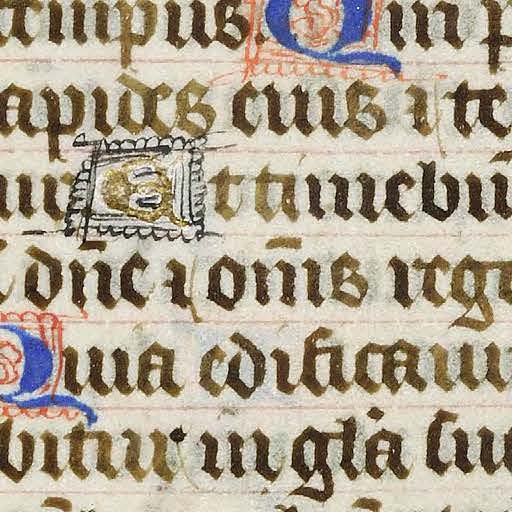 tempus. Qm p
lapides eius ⁊ te
Et timebūt
dn̄e ⁊ om̄s rege
Quia edificauit
bitur in gl̄a su